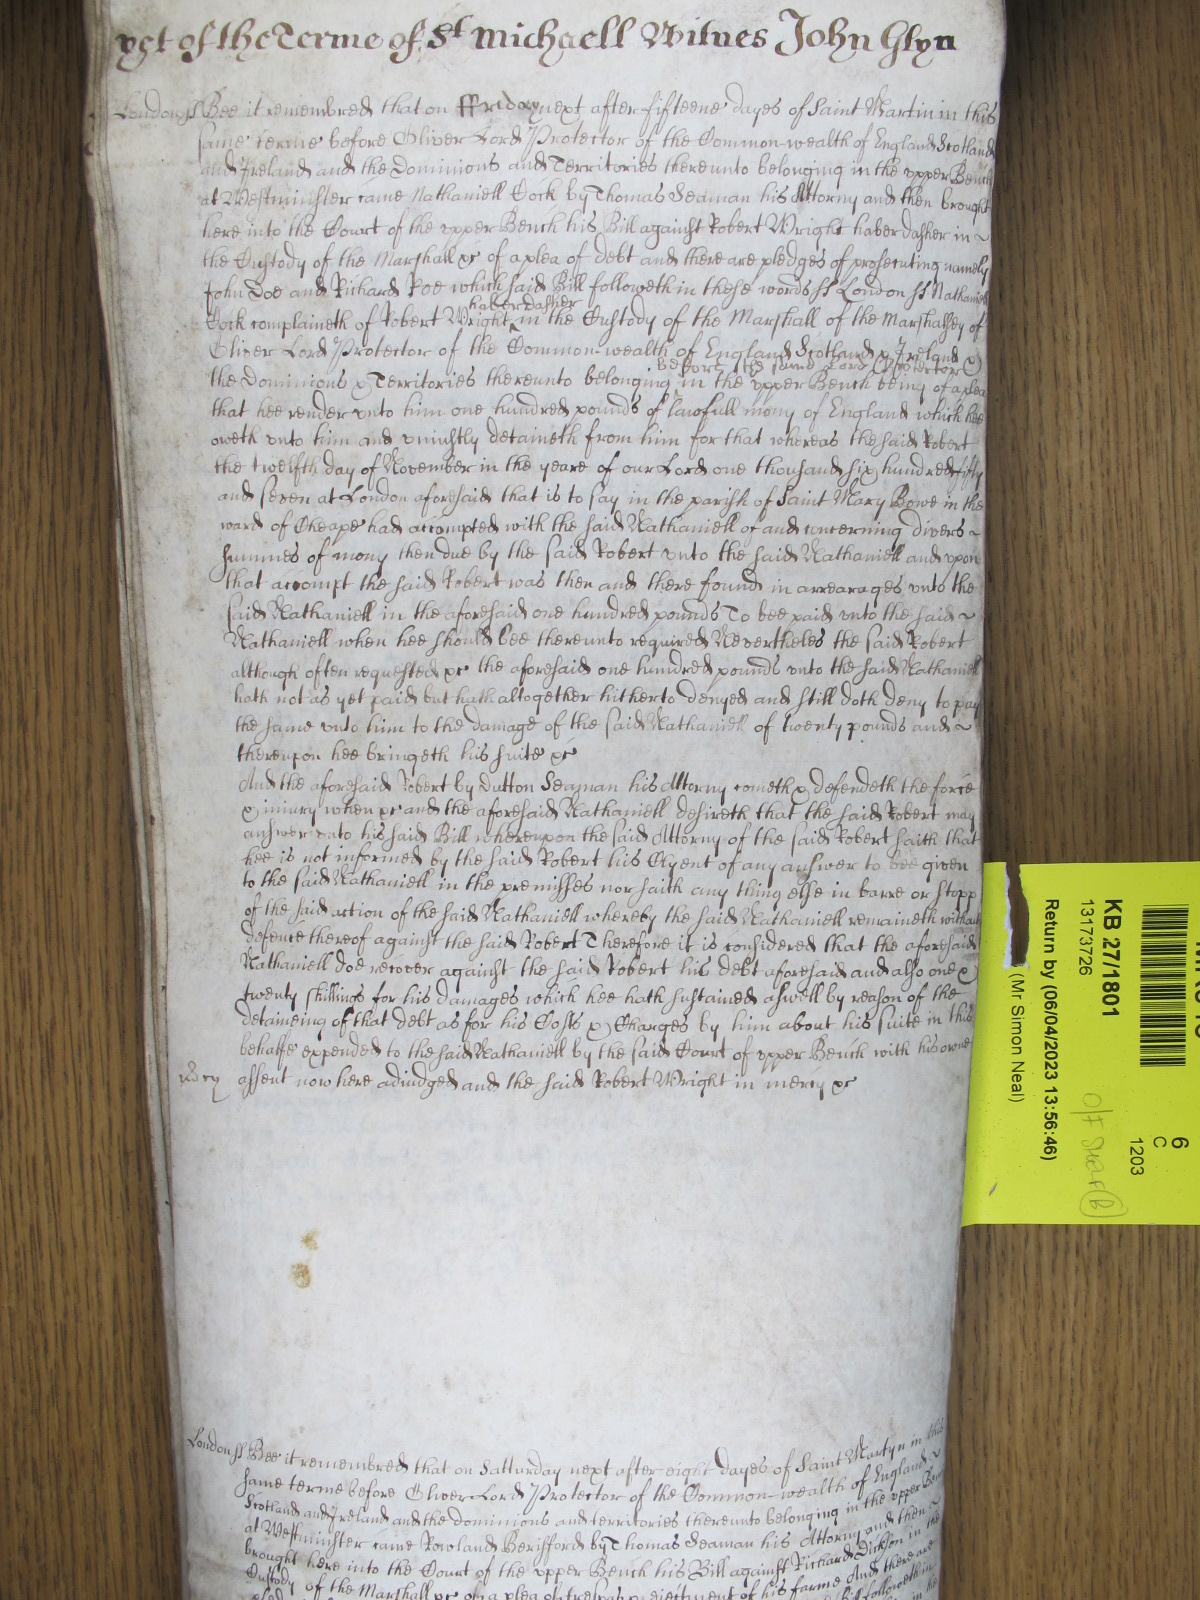 yet of the Terme of St Michaell Witnes John Glyn
London ss Bee it remembred that on ffriday next after fifteene dayes of Saint Martin in this
same terme before Oliver Lord Protector of the Common-wealth of England Scotland
and Ireland and the Dominions and Territories thereunto belonging in the vpper Bench
at Westminster came Nathaniell Cock by Thomas Seaman his Attorny and then brought
here into the Court of the vpper Bench his Bill against Robert Wright haberdasher in ~
the Custody of the Marshall &c of a plea of debt and there are pledges of prosecuting namely
John Doe and Richard Roe which said Bill followeth in these words ss London ss Nathaniell
haberdasher
Cock complaineth of Robert Wright ^ in the Custody of the Marshall of the Marshalsey of
Oliver Lord Protector of the Common-wealth of England Scotland & Ireland &
before the said Lord Protector
the Dominions & Territories thereunto belonging ^ in the vpper Bench being of a plea
that hee render vnto him one hundred pounds of lawfull mony of England which hee
oweth vnto him and vniustly detaineth from him for that whereas the said Robert
the twelfth day of November in the yeare of our Lord one thousand six hundred fifty
and seven at London aforesaid that is to say in the parish of Saint Mary Bowe in the
ward of Cheape had accompted with the said Nathaniell of and concerning divers ~
summes of mony then due by the said Robert vnto the said Nathaniell and vpon
that accompt the said Robert was then and there found in arrearages vnto the
said Nathaniell in the aforesaid one hundred pounds To bee paid vnto the said ~
Nathaniell when hee should bee thereunto required Nevertheles the said Robert
although often requested &c the aforesaid one hundred pounds vnto the said Nathaniell
hath not as yet paid but hath altogether hitherto denyed and still doth deny to pay
the same vnto him to the damage of the said Nathaniell of twenty pounds and ~
thereupon hee bringeth his suite &c
And the aforesaid Robert by Dutton Seaman his Attorny cometh & defendeth the force
& iniury when &c and the aforesaid Nathaniell desireth that the said Robert may
answer vnto his said Bill whereupon the said Attorny of the said Robert saith that
hee is not informed by the said Robert his Clyent of any answer to bee given
to the said Nathaniell in the premisses nor saith any thing else in barre or stopp
of the said action of the said Nathaniell whereby the said Nathaniell remaineth without
defence thereof against the said Robert Therefore it is considered that the aforesaid
Nathaniell doe recover against the said Robert his debt aforesaid and also one &
twenty shillings for his damages which hee hath sustained aswell by reason of the
detaineing of that debt as for his Costs & Charges by him about his suite in this
behalfe expended to the said Nathaniell by the said Court of vpper Bench with his owne
mercy assent now here adiudged and the said Robert Wright in mercy &c
London ss Bee it remembred that on Satturday next after eight dayes of Saint Martyn in this
same terme before Oliver Lord Protector of the Common-wealth of England ~
Scotland and Ireland and the dominions and territories thereunto belonging in the vpper Bench
at Westminster came Rowland Berisfford by Thomas Seaman his Attorny and then ~
brought here into the Court of the vpper Bench his Bill against Richard Dickson in the
Custody of the Marshall &c of a plea of trespas & eiectment of his farme And there are
KB 27/1801
13173726
Return by (06/04/2023 13:56:46)
(Mr Simon Neal)
6
C
1203